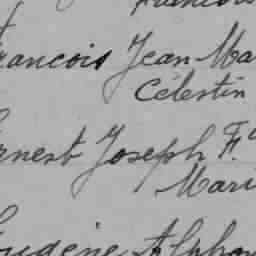 rancois Jean Ma
Célestin
rnest Joseph F.
Mari
ugène Alphon